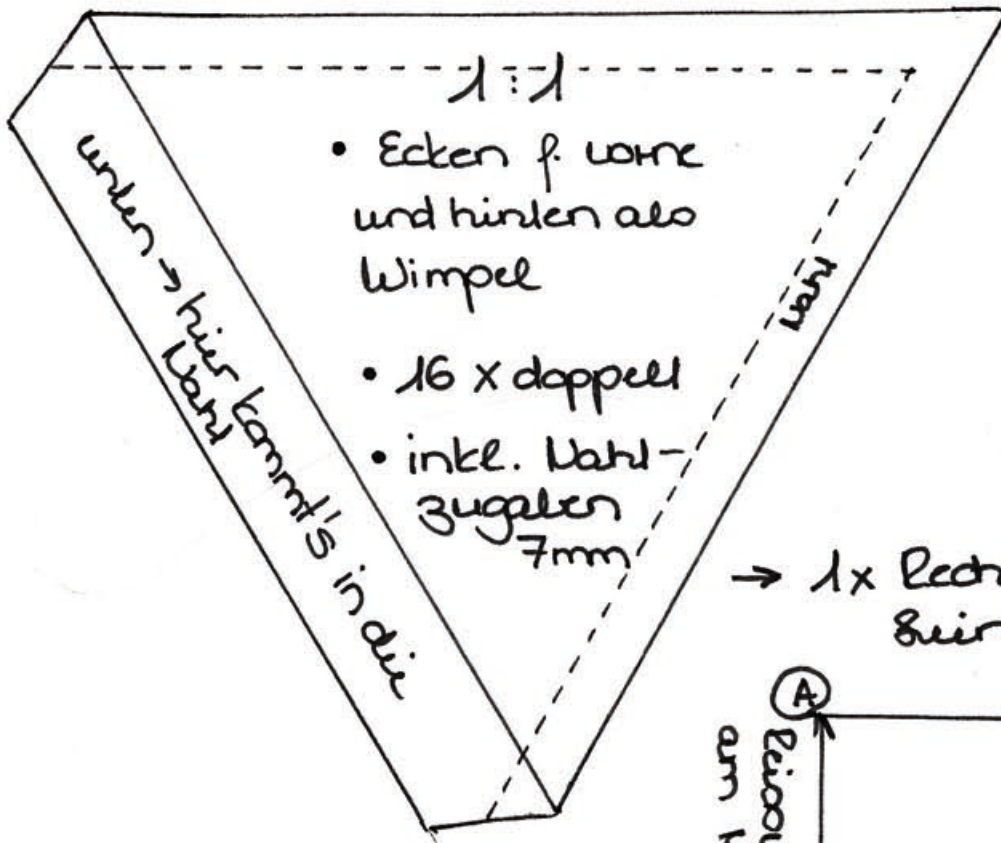 1:1
• Ecken f. vorne
und hinten als
Wimpel
• 16 x doppelt
• inkl. Naht-
zugaben
7mm
unten → hier kommt's in die
Naht
Naht
→ 1x
A
am